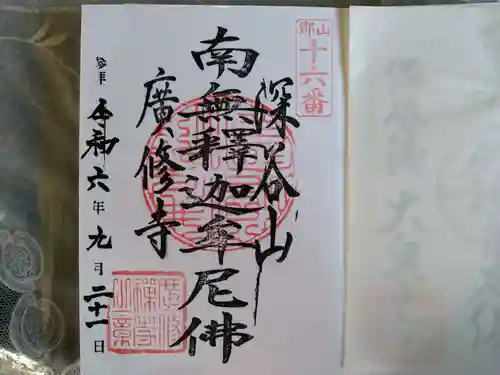 郡山
十六番
深谷山
南無釋迦牟尼佛
廣修寺
参拝 令和六年九月二十一日